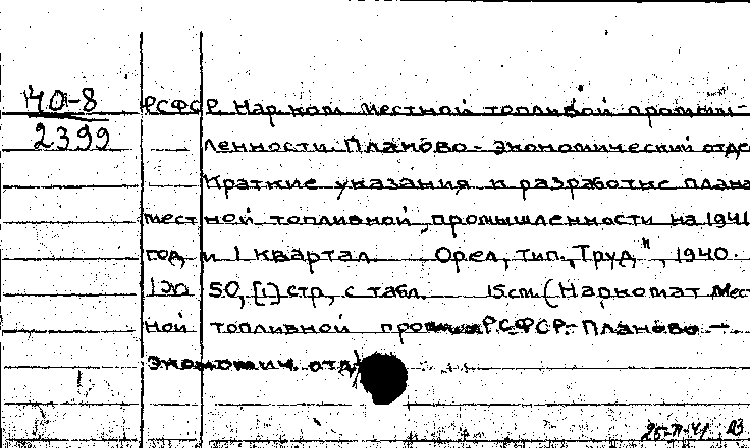 40-8
2399
РСФСР. Нар. ком. местной топливной промыш-
ленности. Планово-экономический отдел
Краткие указания к разработке плана
местной топливной промышленности на 1941
год и I квартал. Орел, тип. "Труд", 1940.
50, [1] стр, с табл. 15 см. (Наркомат мест
ной топливной пром РСФСР. Планово-
экономич. отд)
25-II-41